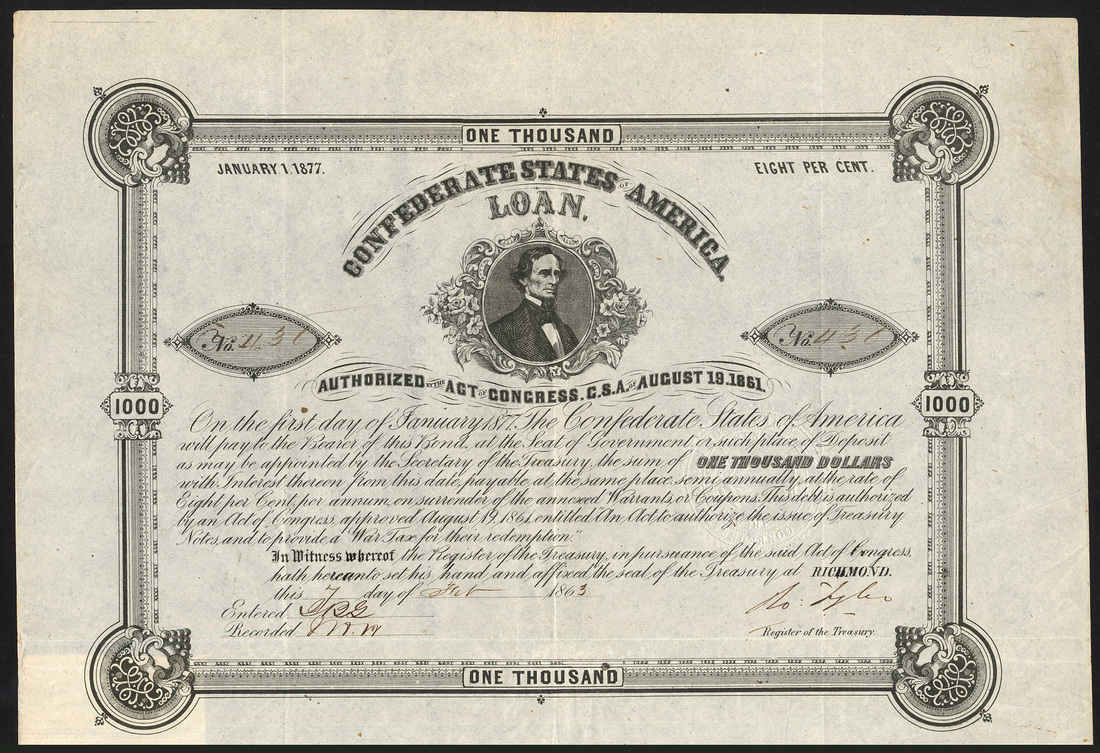 ONE THOUSAND
JANUARY 1. 1877.
EIGHT PER CENT.
CONFEDERATE STATES OF AMERICA
LOAN.
No. 431
No. 431
AUTHORIZED BY THE ACT OF CONGRESS. C.S.A. OF AUGUST 19. 1861.
1000
1000
On the first day of January 1877. The Confederate States of America
will pay to the Bearer of this Bond, at the Seat of Government, or such place of Deposit
as may be appointed by the Secretary of the Treasury, the sum of ONE THOUSAND DOLLARS
with Interest thereon from this date, payable at the same place, semi-annually, at the rate of
Eight per Cent, per annum, on surrender of the annexed Warrants, or Coupons. This debt is authorized
by an Act of Congress, approved August 19, 1861, entitled An Act to authorize the issue of Treasury
Notes, and to provide a "War Tax for their redemption."
In Witness whereof the Register of the Treasury, in pursuance of the said Act of Congress,
hath hereunto set his hand and affixed the seal of the Treasury at RICHMOND.
this 7 day of Feb 1863
Entered
Recorded
Ro: Tyler
Register of the Treasury.
ONE THOUSAND